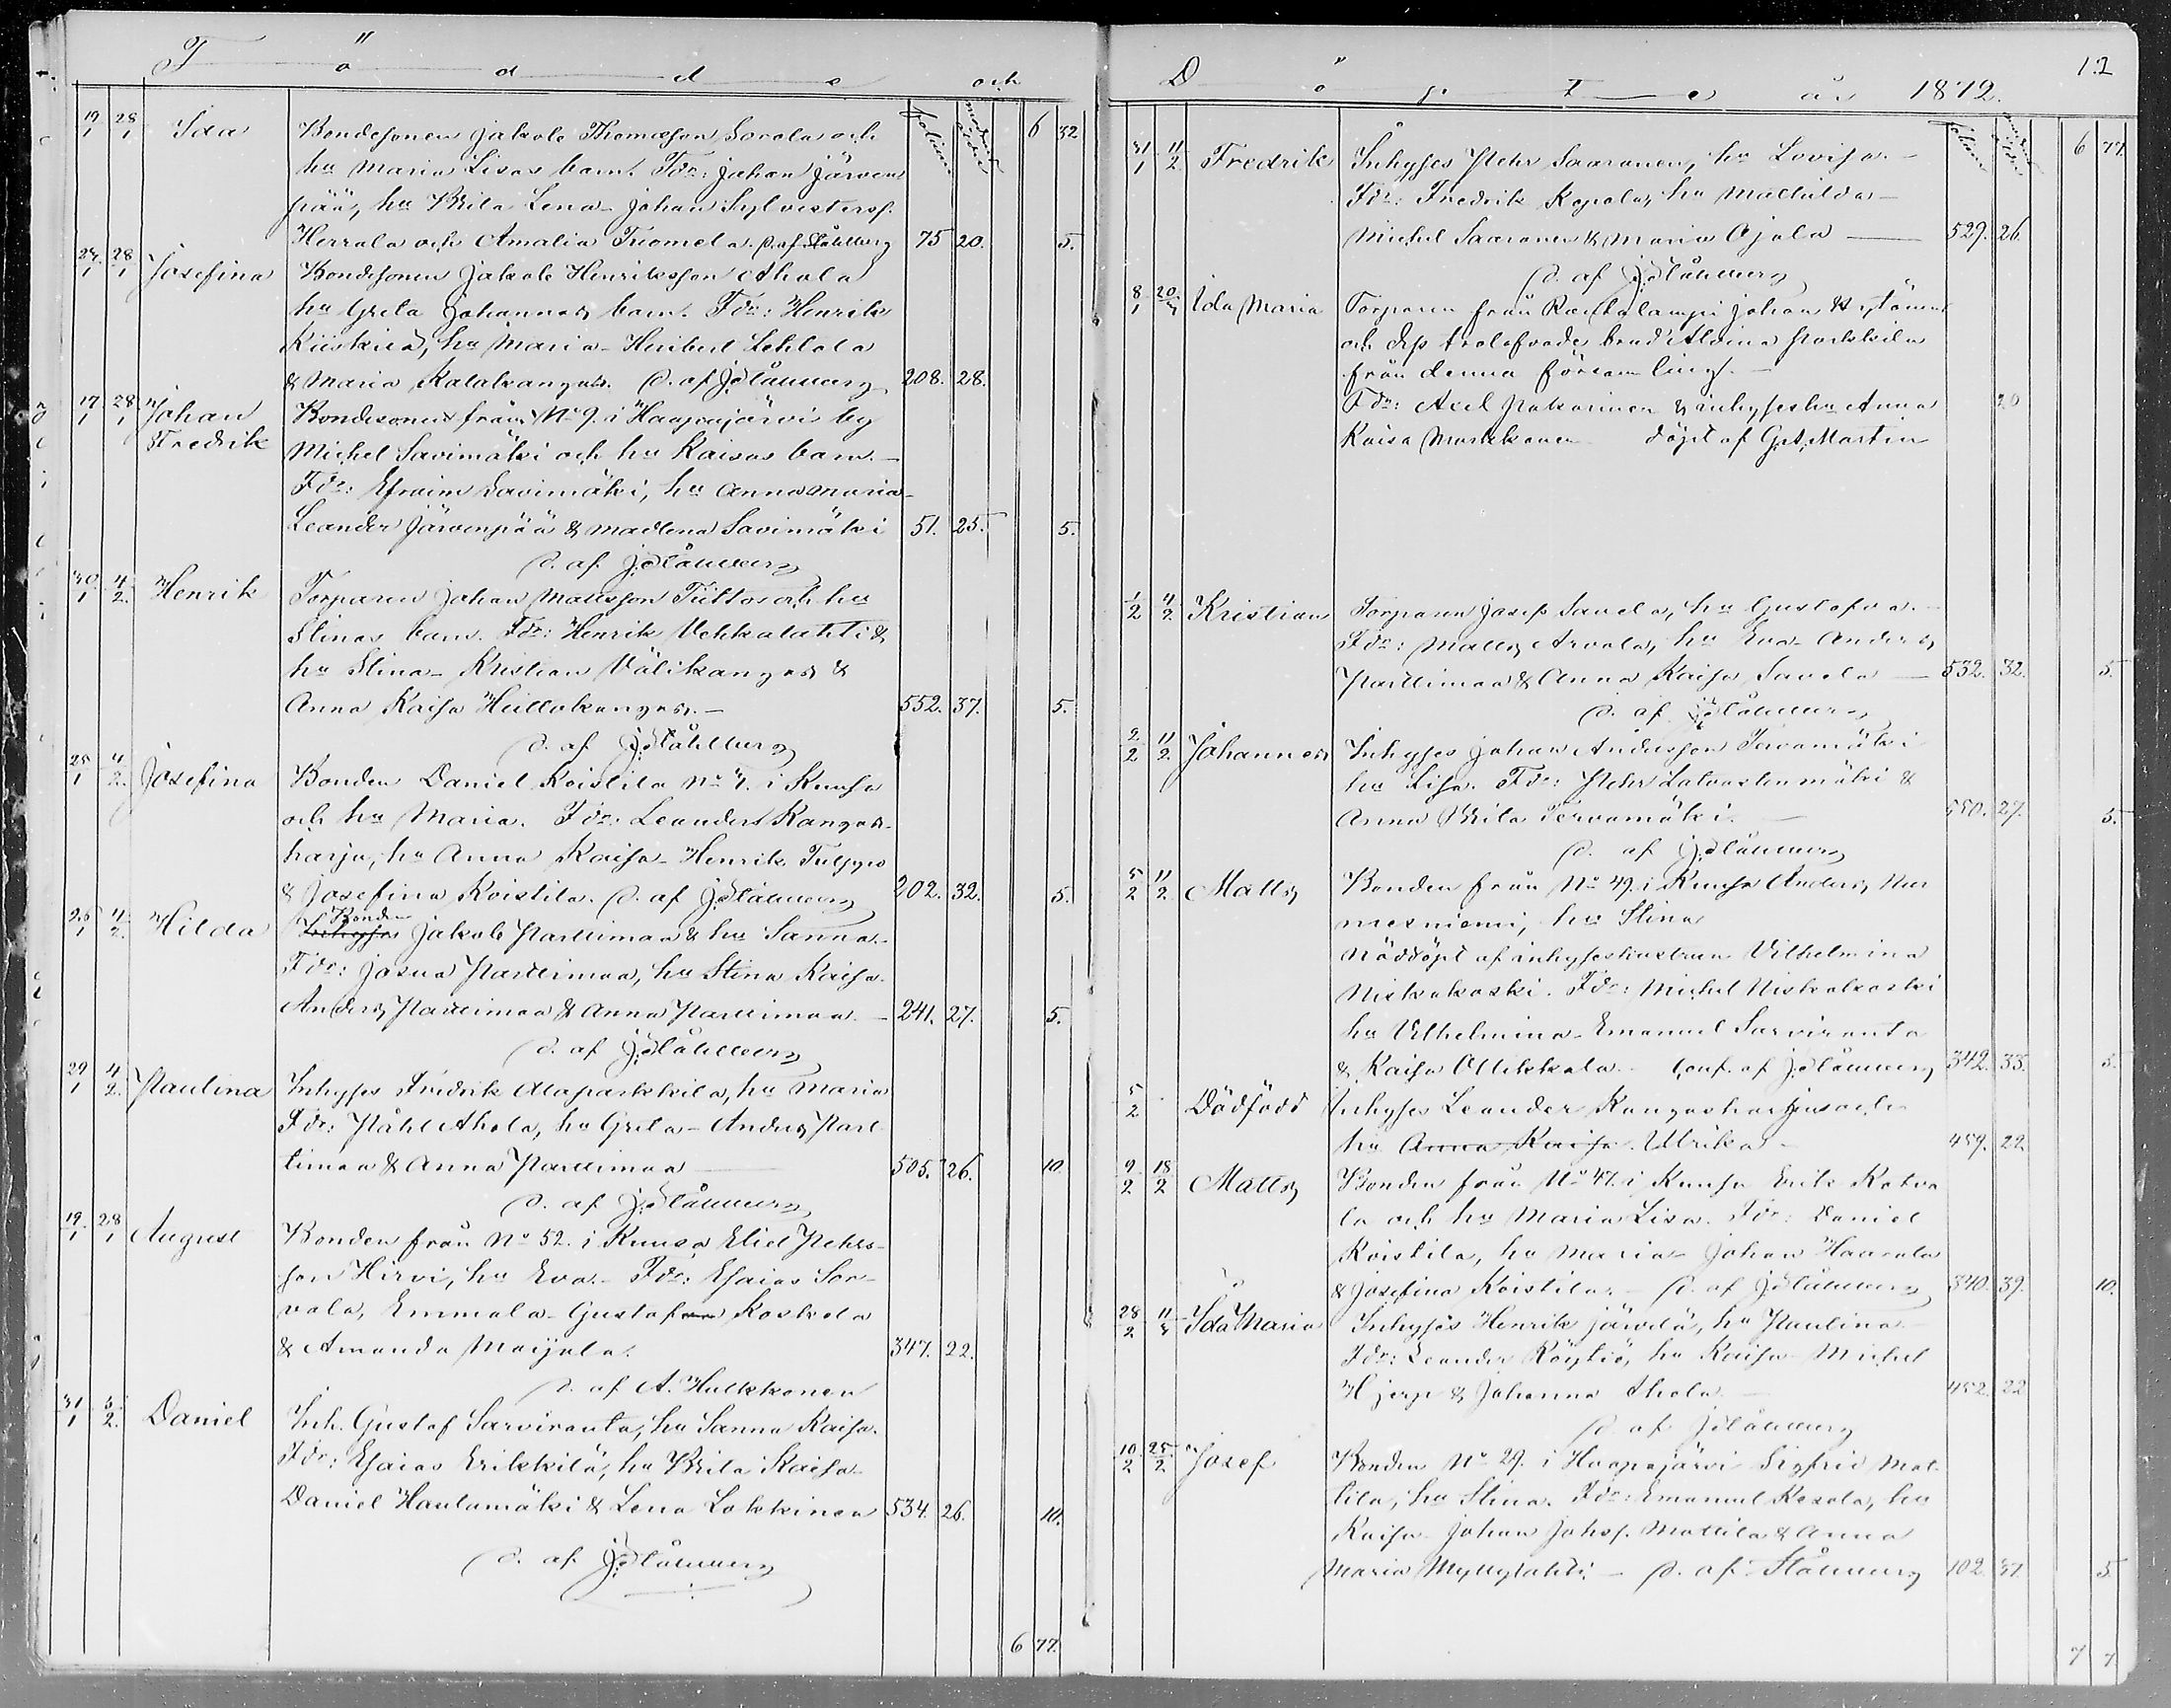 Födde och
folium moders ålder 6 32
19/1 28/1 Ida Bondesonen Jakob Thomasson Sorola och
hu Maria Lisas barn. Fdr: Johan Järven
pää, hu Brita Lena - Johan Sylvestersf.
Herrala och Amalia Tuomela. D. af Ståhlberg 75 20. 5.
24/1 28/1 Josefina Bondesonen Jakob Henriksson Ahola
hu Greta Johannas barn. Fdr: Henrik
Kiiskilä, hu Maria - Heribert Lehtola
& Maria Katakangas. D. af J. Ståhlberg 208. 28.
17/1 28/1 Johan Bondesonen från No 9. i Haapajärvi by
Fredrik Michel Savimäki och hu Kaisas barn. -
Fdr: Efraim Savimäki, hu Anna Maria -
Leander Järvenpää & Madlena Savimäki 51. 25. 5.
D. af J. Ståhlberg
30/1 4/2 Henrik Torparen Johan Matsson Tiitto och hu
Stinas barn. Fdr: Henrik Vehkalahti &
hu Stina - Kristian Välikangas &
Anna Kaisa Hiittokangas. - 552. 37. 5.
D. af J. Ståhlberg
25/1 4/2 Josefina Bonden Daniel Koistila No 7. i Kumsa
och hu Maria. Fdr: Leander Kangas-
harju, hu Anna Kaisa - Henrik Tulppo
& Josefina Koistila. D. af J. Ståhlberg 202. 32. 5.
26/1 4/2 Hilda Inhyses Bonden Jakob Parttimaa & hu Sanna. -
Fdr: Josua Parttimaa, hu Stina Kaisa.
Anders Parttimaa & Anna Parttimaa. - 241. 27. 5.
D. af J. Ståhlberg
29/1 4/2 Paulina Inhyses Fredrik Alaparkkila, hu Maria
Fdr: Påhl Ahola, hu Greta - Anders Part
timaa & Anna Parttimaa - 505. 26. 10.
D. af J. Ståhlberg
19/1 28/1 August Bonden från No 52. i Kumsa Eliel Pehrs-
son Hirvi, hu Eva. - Fdr: Esaias Sor-
vala, Emmala - Gustaf Koskela
& Amanda Maijala. 347. 22.
D. af A. Hulkkonen
31/1 3/2 Daniel Inh. Gustaf Sarviranta, hu Sanna Kaisa.
Fdr: Esaias Erikkilä, hu Brita Kaisa
Daniel Hautamäki & Lena Lokkinen 534. 26. 10.
D. af J. Ståhlberg
6 77.
Döpte år 1872. 12
folium 6 77.
31/1 11/2 Fredrik Inhyses Pehr Saaranen, hu Lovisa. -
Fdr: Fredrik Kopola, hu Mathilda -
Michel Saaranen & Maria Ojala - 529. 26.
D. af J. Ståhlberg
8/1 20/3 Ida Maria Torparen från Rautalampi Johan
och dess trolofvade brud Aldina Parkkila
från denna församling. -
Fdr: Axel Pakarinen & inhyseshu Anna 20
Kaisa Markkanen döpt af G. A. Martin
1/2 4/2 Kristian Torparen Josef Savela, hu Gustafva. -
Fdr: Matts Arvola, hu Eva - Anders
Parttimaa & Anna Kaisa Savela - 532. 32. 5.
D. af J. Ståhlberg
2/2 11/2 Johannes Inhyses Johan Andersson Tervamäki
hu Lisa. Fdr: Pehr Latvastenmäki &
Anna Brita Tervamäki. - 550. 27. 5.
D. af J. Ståhlberg
5/2 11/2 Matts Bonden från No 49. i Kumsa Anders Nur
mesniemi, hu Stina
Nöddöpt af inhyseshustrun Vilhelmina
Niskakoski. Fdr: Michel Niskakoski
hu Vilhelmina - Emanuel Sarviranta
& Kaisa Ollikkala. - Conf. af J. Ståhlberg 342. 33. 5.
5/2 Dödfödd Inhyses Leander Kangasharju och
hu Anna Kaisa. Ulrika - 459. 22.
9/2 18/2 Matts Bonden från No 47. i Kumsa Erik Katva
la och hu Maria Lisa. Fdr: Daniel
Koistila, hu Maria - Johan Haarala
& Josefina Koistila. - D. af J. Ståhlberg 340. 39. 10.
28/2 11/3 Ida Maria Inhyses Henrik Järvelä, hu Paulina -
Fdr: Leander Röytiö, hu Kaisa - Michel
Hjerp & Johanna Ahola. - 452. 22
D. af J. Ståhlberg
10/2 25/2 Josef Bonden No 29. i Haapajärvi Sigfrid Mat-
tila, hu Stina. Fdr: Emanuel Kesola, hu
Kaisa - Johan Johsf. Mattila & Anna
Maria Myllylahti - D. af Ståhlberg 102. 37. 5.
7 7